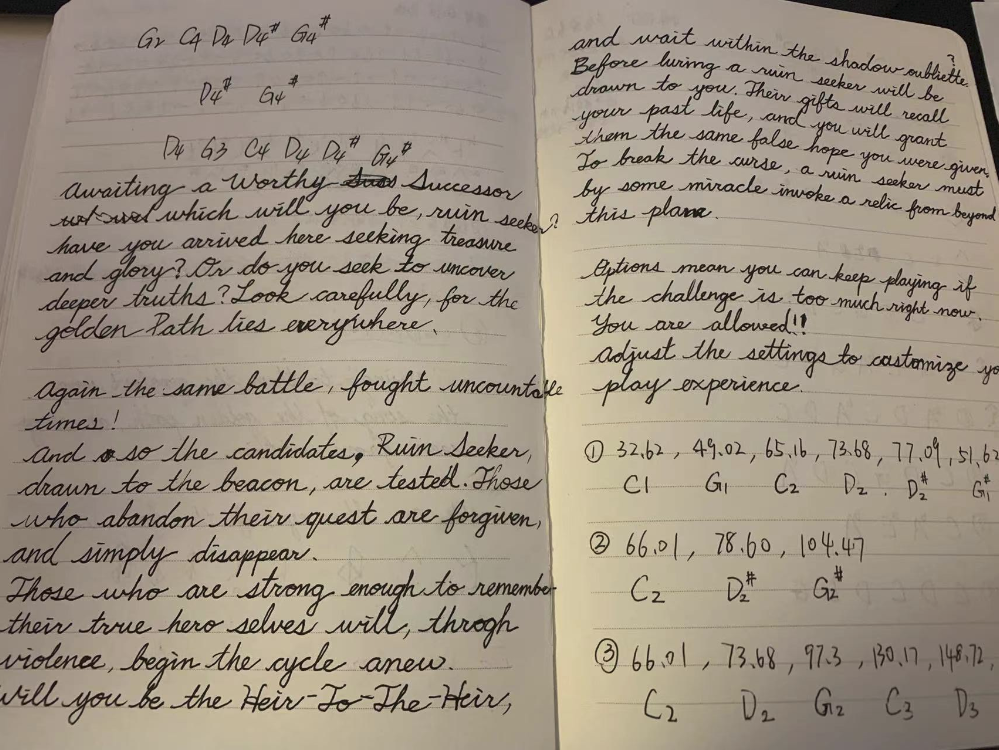 G2 C4 D2 D4# G4#
D4# G4#
D4 G3 C4 D4 D4# G4#
Awaiting a Worthy Successor
which will you be, ruin seeker?
have you arrived here seeking treasure
and glory? Or do you seek to uncover
deeper truths? Look carefully, for the
golden Path lies everywhere.
Again the same battle, fought uncountable
times!
And so the candidates, Ruin Seeker,
drawn to the beacon, are tested. Those
who abandon their quest are forgiven,
and simply disappear.
Those who are strong enough to remember
their true hero selves will, throgh
violence, begin the cycle anew.
will you be the Heir-To-The-Heir,
and wait within the shadow oubliette?
Before luring a ruin seeker will be
drawn to you. Their gifts will recall
your past life, and you will grant
them the same false hope you were given,
To break the curse, a ruin seeker must
by some miracle invoke a relic from beyond
this plane.
Options mean you can keep playing if
the challenge is too much right now.
You are allowed!!
Adjust the settings to castomize yo
play experience.
① 32.62, 49.02, 65.16, 73.68, 77.09, 51.62
C1 G1 C2 D2. D2# G1#
② 66.01, 78.60, 104.47
C2 D2# G2#
③ 66.01, 73.68, 97.3, 130.17, 148.72,
C2 D2 G2 C3 D3